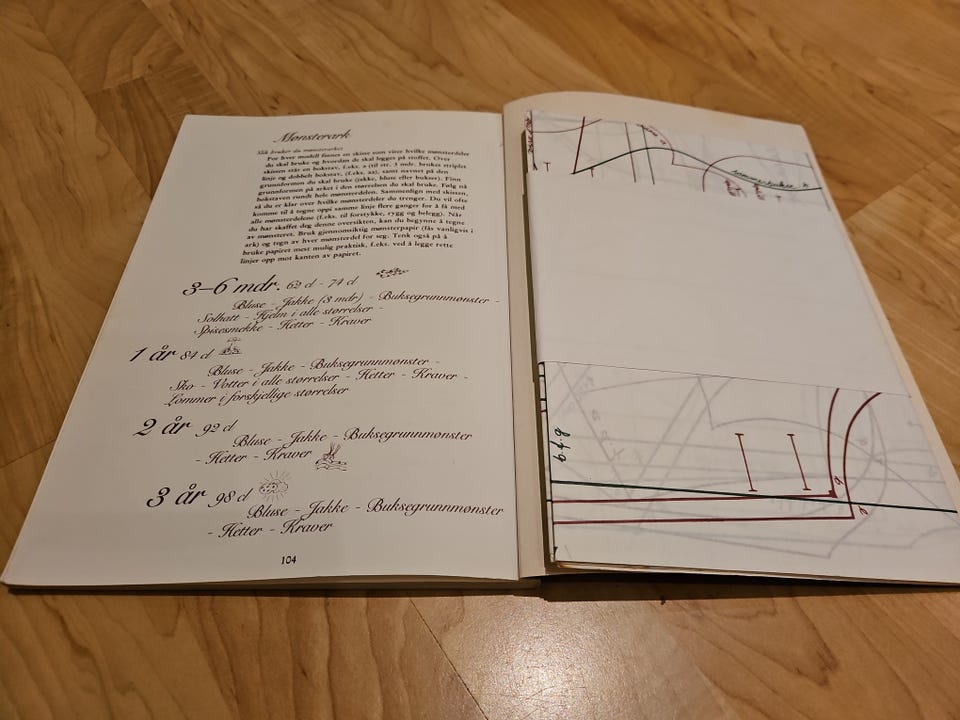 Mønsterark
Slik bruker du mønsterarket
For hver modell finnes en skisse som viser hvilke mønsterdeler
du skal bruke og hvordan de skal legges på stoffet. Over
skissen står en bokstav, f.eks. a (til str. 3 mdr. brukes stiplet
linje og dobbelt bokstav, f.eks. aa), samt navnet på den
grunnformen du skal bruke (jakke, bluse eller bukser). Finn
grunnformen på arket i den størrelsen du skal bruke. Følg nå
bokstaven rundt hele mønsterdelen. Sammenlign med skissen,
så du er klar over hvilke mønsterdeler du trenger. Du vil ofte
komme til å tegne oppi samme linje flere ganger for å få med
alle mønsterdelene (f.eks. til forstykke, rygg og belegg). Når
du har skaffet deg denne oversikten, kan du begynne å tegne
av mønsteret. Bruk gjennomsiktig mønsterpapir (fås vanligvis i
ark) og tegn av hver mønsterdel for seg. Tenk også på å
bruke papiret mest mulig praktisk, f.eks. ved å legge rette
linjer opp mot kanten av papiret.
3–6 mdr. 62 cl - 74 cl
Bluse - Jakke (3 mdr) - Buksegrunnmønster -
Solhatt - Hjelm i alle størrelser -
Spisesmekke - Hetter - Kraver
1 år 84 cl
Bluse - Jakke - Buksegrunnmønster -
Sko - Votter i alle størrelser - Hetter - Kraver -
Lommer i forskjellige størrelser
2 år 92 cl
Bluse - Jakke - Buksegrunnmønster
- Hetter - Kraver
3 år 98 cl
Bluse - Jakke - Buksegrunnmønster
- Hetter - Kraver
104